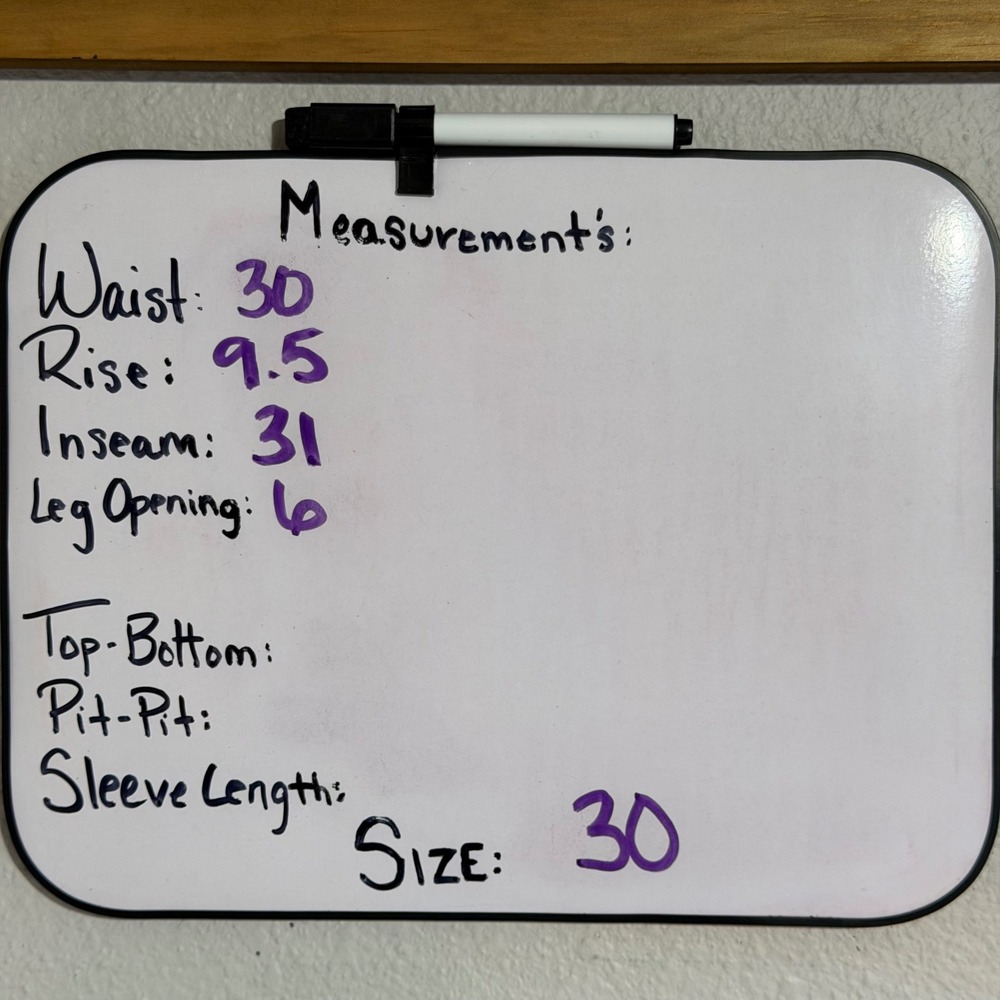 Measurement's:
Waist: 30
Rise: 9.5
Inseam: 31
Leg Opening: 6
Top-Bottom:
Pit-Pit:
Sleeve Length:
SIZE: 30